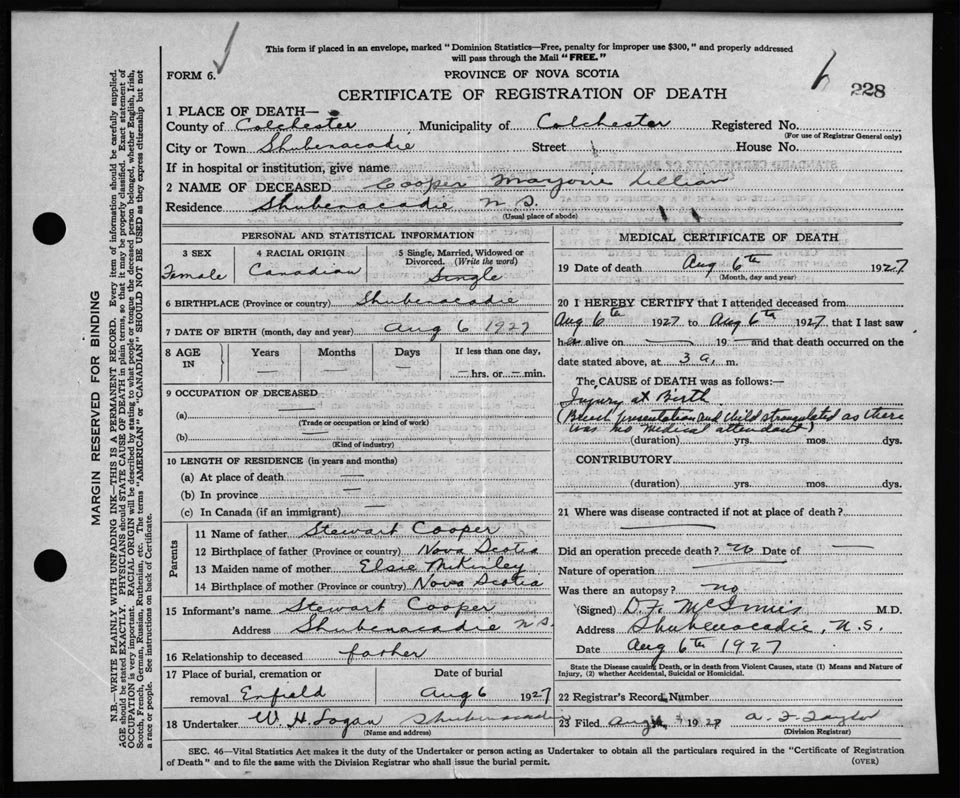 This form if placed in an envelope, marked "Dominion Statistics—Free, penalty for improper use $300," and properly addressed
will pass through the Mail "FREE."
FORM 6.
PROVINCE OF NOVA SCOTIA
CERTIFICATE OF REGISTRATION OF DEATH
6 228
1 PLACE OF DEATH—
County of Colchester Municipality of Colchester Registered No.
(For use of Registrar General only)
City or Town Shubenacadie Street House No.
If in hospital or institution, give name
2 NAME OF DECEASED Cooper Marjorie Lillian
Residence Shubenacadie N.S.
(Usual place of abode)
PERSONAL AND STATISTICAL INFORMATION
3 SEX 4 RACIAL ORIGIN 5 Single, Married, Widowed or
Divorced. (Write the word)
Female Canadian Single
6 BIRTHPLACE (Province or country) Shubenacadie
7 DATE OF BIRTH (month, day and year) Aug 6 1927
8 AGE IN Years Months Days If less than one day,
— — — — hrs. or — min.
9 OCCUPATION OF DECEASED
(a) —
(Trade or occupation or kind of work)
(b) —
(Kind of industry)
10 LENGTH OF RESIDENCE (in years and months)
(a) At place of death —
(b) In province —
(c) In Canada (if an immigrant) —
Parents
11 Name of father Stewart Cooper
12 Birthplace of father (Province or country) Nova Scotia
13 Maiden name of mother Elsie McKinley
14 Birthplace of mother (Province or country) Nova Scotia
15 Informant's name Stewart Cooper
Address Shubenacadie N.S.
16 Relationship to deceased father
17 Place of burial, cremation or Date of burial
removal Enfield Aug 6 1927
18 Undertaker W. H. Logan Shubenacadie
(Name and address)
MEDICAL CERTIFICATE OF DEATH
19 Date of death Aug 6th 1927
(Month, day and year)
20 I HEREBY CERTIFY that I attended deceased from
Aug 6th 1927 to Aug 6th 1927 that I last saw
her alive on — 19 — and that death occurred on the
date stated above, at 3 a. m.
The CAUSE OF DEATH was as follows:—
Injury at Birth
(Breech presentation and child strangulated as there
was no medical attendant)
(duration) yrs. mos. dys.
CONTRIBUTORY
(duration) yrs. mos. dys.
21 Where was disease contracted if not at place of death?
—
Did an operation precede death? no Date of —
Nature of operation
Was there an autopsy? no
(Signed) D.F. McInnis M.D.
Address Shubenacadie, N.S.
Date Aug 6th 1927
State the Disease causing Death, or in death from Violent Causes, state (1) Means and Nature of
Injury, (2) whether Accidental, Suicidal or Homicidal.
22 Registrar's Record Number
23 Filed Aug 1927 A. F. Taylor
(Division Registrar)
SEC. 46—Vital Statistics Act makes it the duty of the Undertaker or person acting as Undertaker to obtain all the particulars required in the "Certificate of Registration
of Death" and to file the same with the Division Registrar who shall issue the burial permit.
(OVER)
MARGIN RESERVED FOR BINDING
N.B.—WRITE PLAINLY WITH UNFADING INK—THIS IS A PERMANENT RECORD. Every item of information should be carefully supplied.
AGE should be stated EXACTLY. PHYSICIANS should STATE CAUSE OF DEATH in plain terms, so that it may be properly classified. Exact statement of
OCCUPATION is very important. RACIAL ORIGIN will be described by stating to what people or tongue the deceased person belonged, whether English, Irish,
Scotch, French, German, Russian, Ruthenian, etc. The terms "AMERICAN" or "CANADIAN" SHOULD NOT BE USED as they express citizenship but not
a race or people. See instructions on back of Certificate.